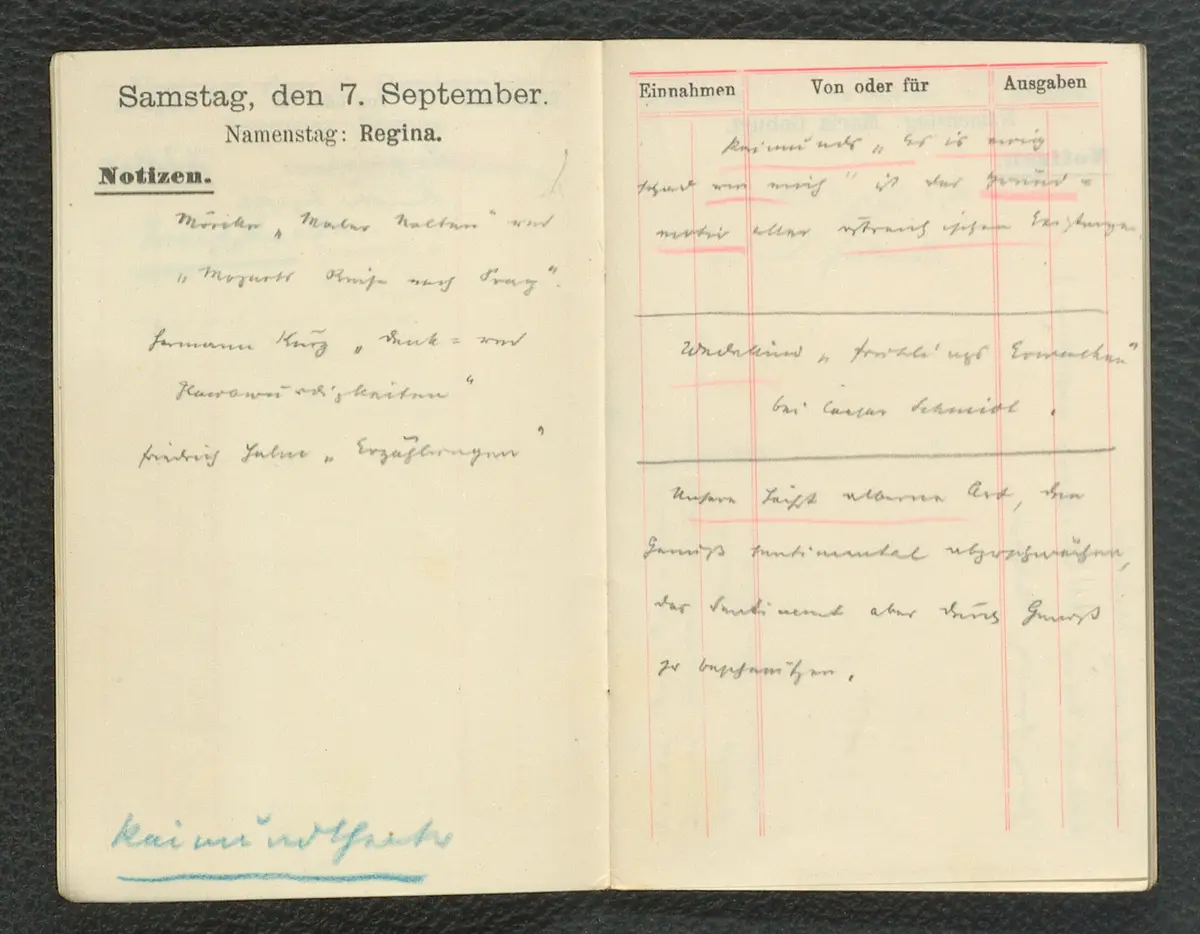 Samstag, den 7. September.
Namenstag: Regina.
Notizen.
Mörike „Maler Nolten“ und
„Mozarts Reise nach Prag“.
Hermann Kurz „Denk= und
Glaubwürdigkeiten“
Friedrich Halm „Erzählungen“
Raimundtheater
Einnahmen
Von oder für
Ausgaben
Raimunds „Es is ewig
schad um mich“ ist das Grund=
motiv aller östreichischen Existenzen.
Wedekind „Frühlings Erwachen“
bei Caesar Schmidt.
Unsere höchst alberne Art, den
Genuß sentimental abzuschwächen,
das Sentiment aber durch Genuß
zu beschmutzen.